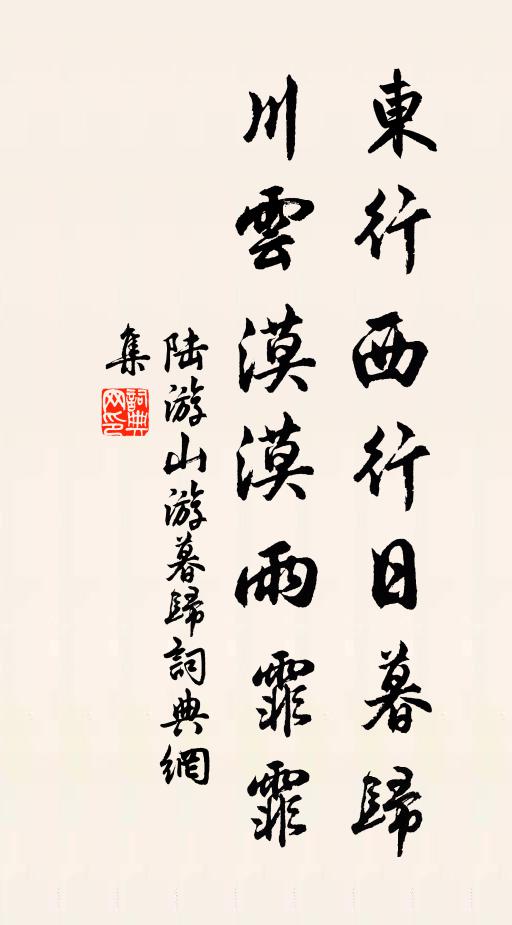 東行西行日暮歸
川雲漠漠雨霏霏
陆游山游暮歸詞典網
集
詞典
网印